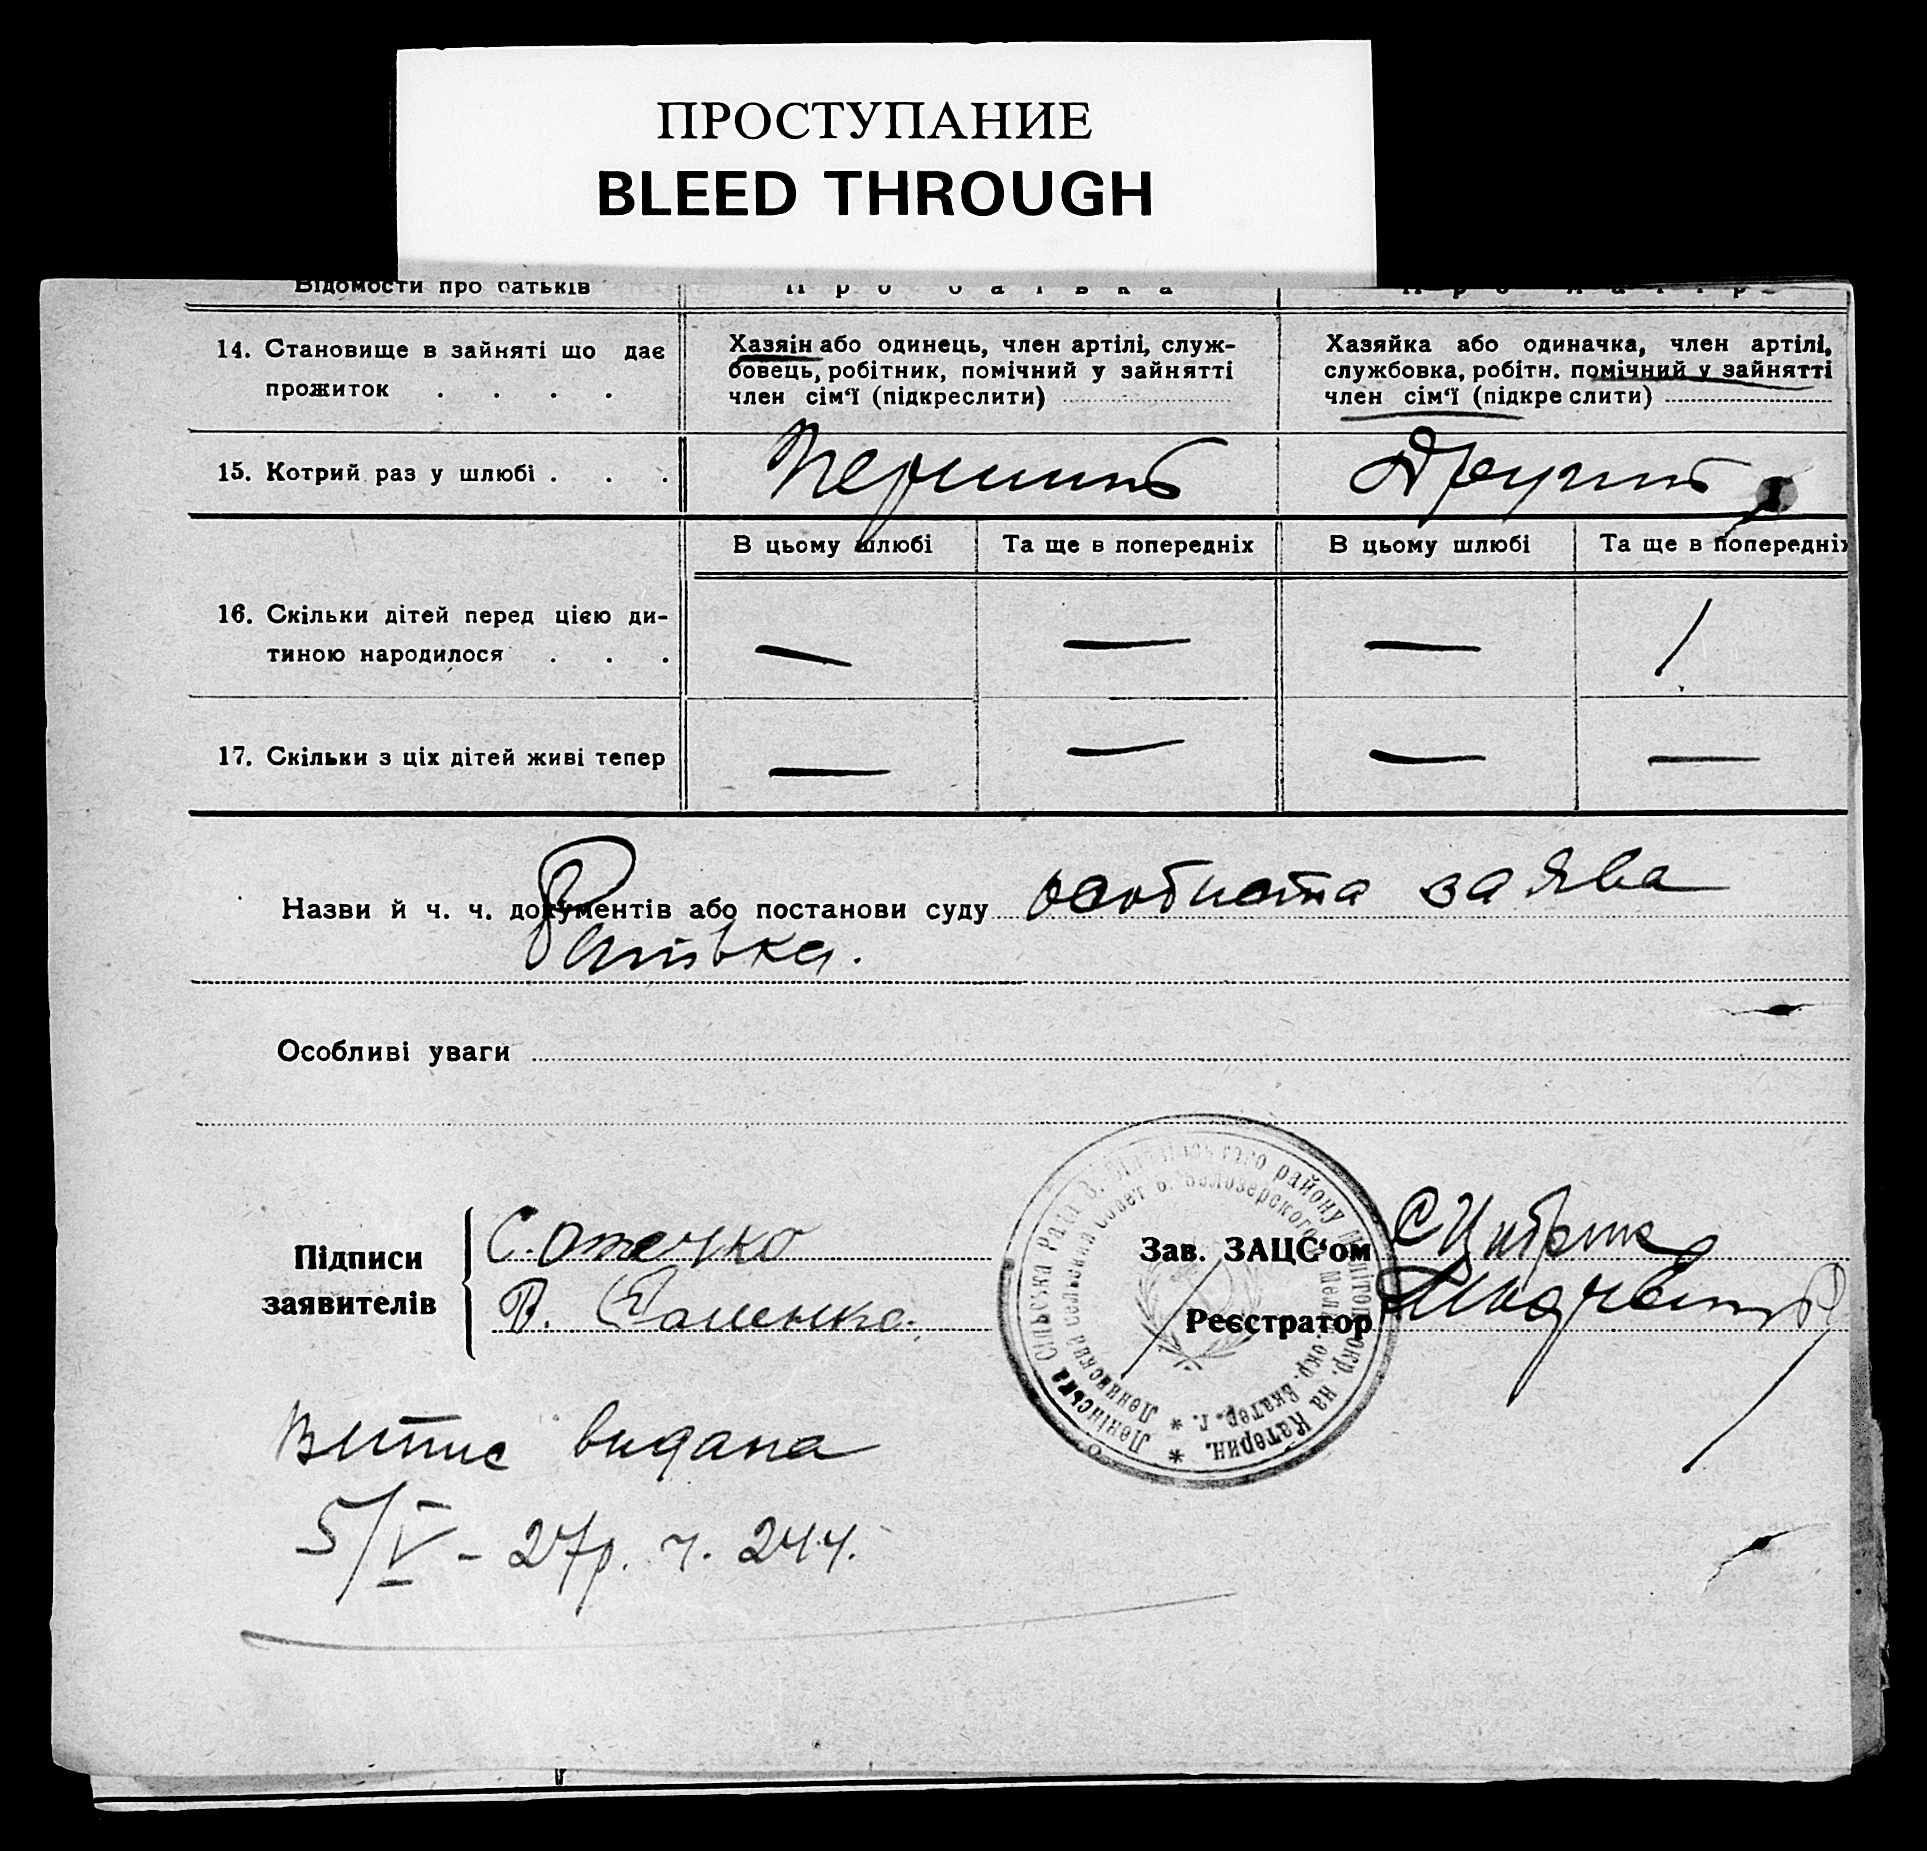 ПРОСТУПАНИЕ
BLEED THROUGH
Відомости про батьків Про батька
14. Становище в зайняті що дає прожиток . . . .
Хазяін або одинець, член артілі, служ-
бовець, робітник, помічний у зайнятті
член сім‘ї (підкреслити)
Хазяйка або одиначка, член артілі,
службовка, робітн. помічний у зайнятті
член сім‘ї (підкреслити)
15. Котрий раз у шлюбі . . . Перший Другий
В цьому шлюбі Та ще в попередніх В цьому шлюбі Та ще в попередніх
16. Скільки дітей перед цією ди-
тиною народилося . . . — — — 1
17. Скільки з ціх дітей живі тепер — — — —
Назви й ч. ч. документів або постанови суду особиста заява
Батька.
Особливі уваги
Підписи
заявителів
Зав. ЗАЦС‘ом
Реєстратор
Ленінська Сільська Рада району Мелітопокр. на Катерин.
Ленинский сельский Совет Белозерского Мел. окр. Екатер. г.
Випис видана
5/V - 27р. ч. 244.